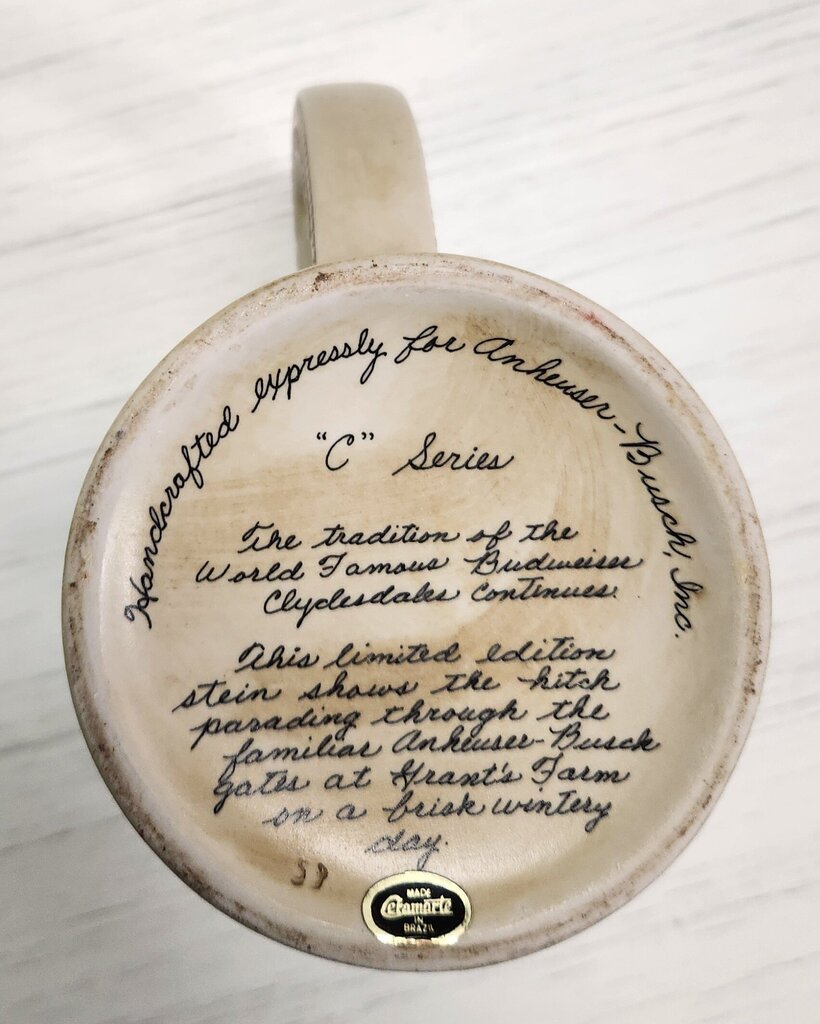 Handcrafted expressly for Anheuser-Busch, Inc.
"C" Series
The tradition of the
World Famous Budweiser
Clydesdales continues.
This limited edition
stein shows the hitch
parading through the
familiar Anheuser-Busch
gates at Grant's Farm
on a brisk wintery
day.
MADE
Ceramarte
IN
BRAZIL